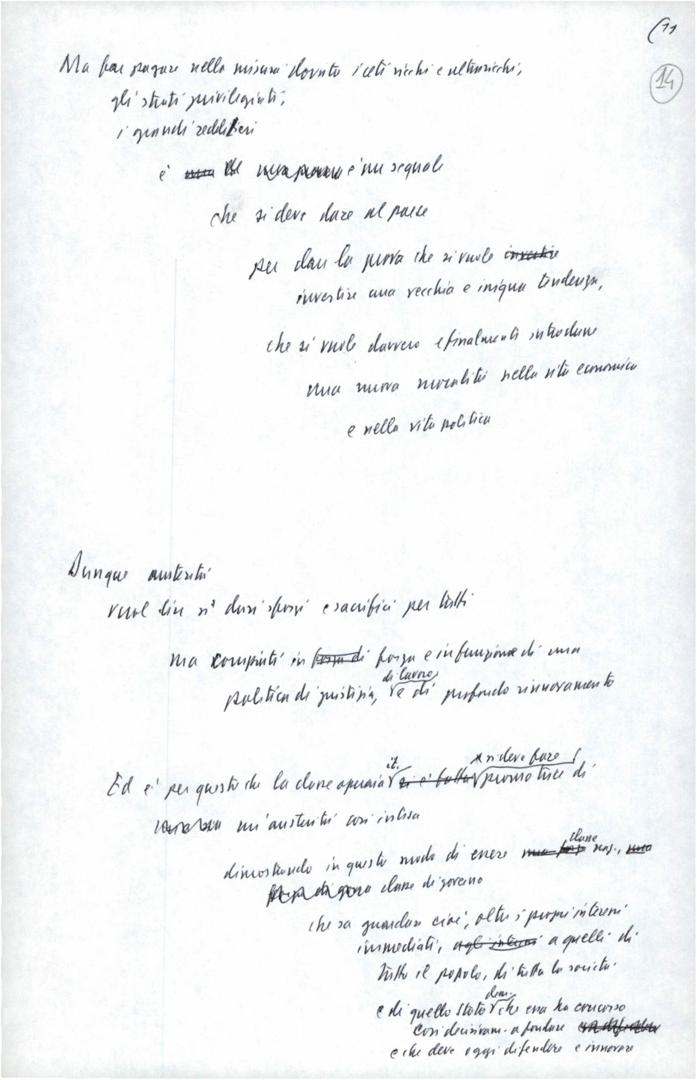 (11
14
Ma far pagare nella misura dovuta i ceti ricchi e ultraricchi,
gli strati privilegiati,
i grandi redditieri
è è un segnale
che si deve dare al paese
per dare la prova che si vuole invertire
invertire una vecchia e iniqua tendenza,
che si vuole davvero e finalmente introdurre
una nuova moralità nella vita economica
e nella vita politica
Dunque austerità
vuol dire sì duri sforzi e sacrifici per tutti
ma compiuti in forza di forza e in funzione di una
di lavoro,
politica di giustizia, e di profondo rinnovamento
it. x si deve fare
Ed è per questo che la classe operaia si è fatta promotrice di
un'austerità così intesa
classe
dimostrando in questo modo di essere naz.,
classe di governo
che sa guardare cioè, oltre i propri interessi
immediati, agli interessi a quelli di
tutto il popolo, di tutta la società
dem.
e di quello Stato che essa ha concorso
così decisivam. a fondare
e che deve oggi difendere e innovare